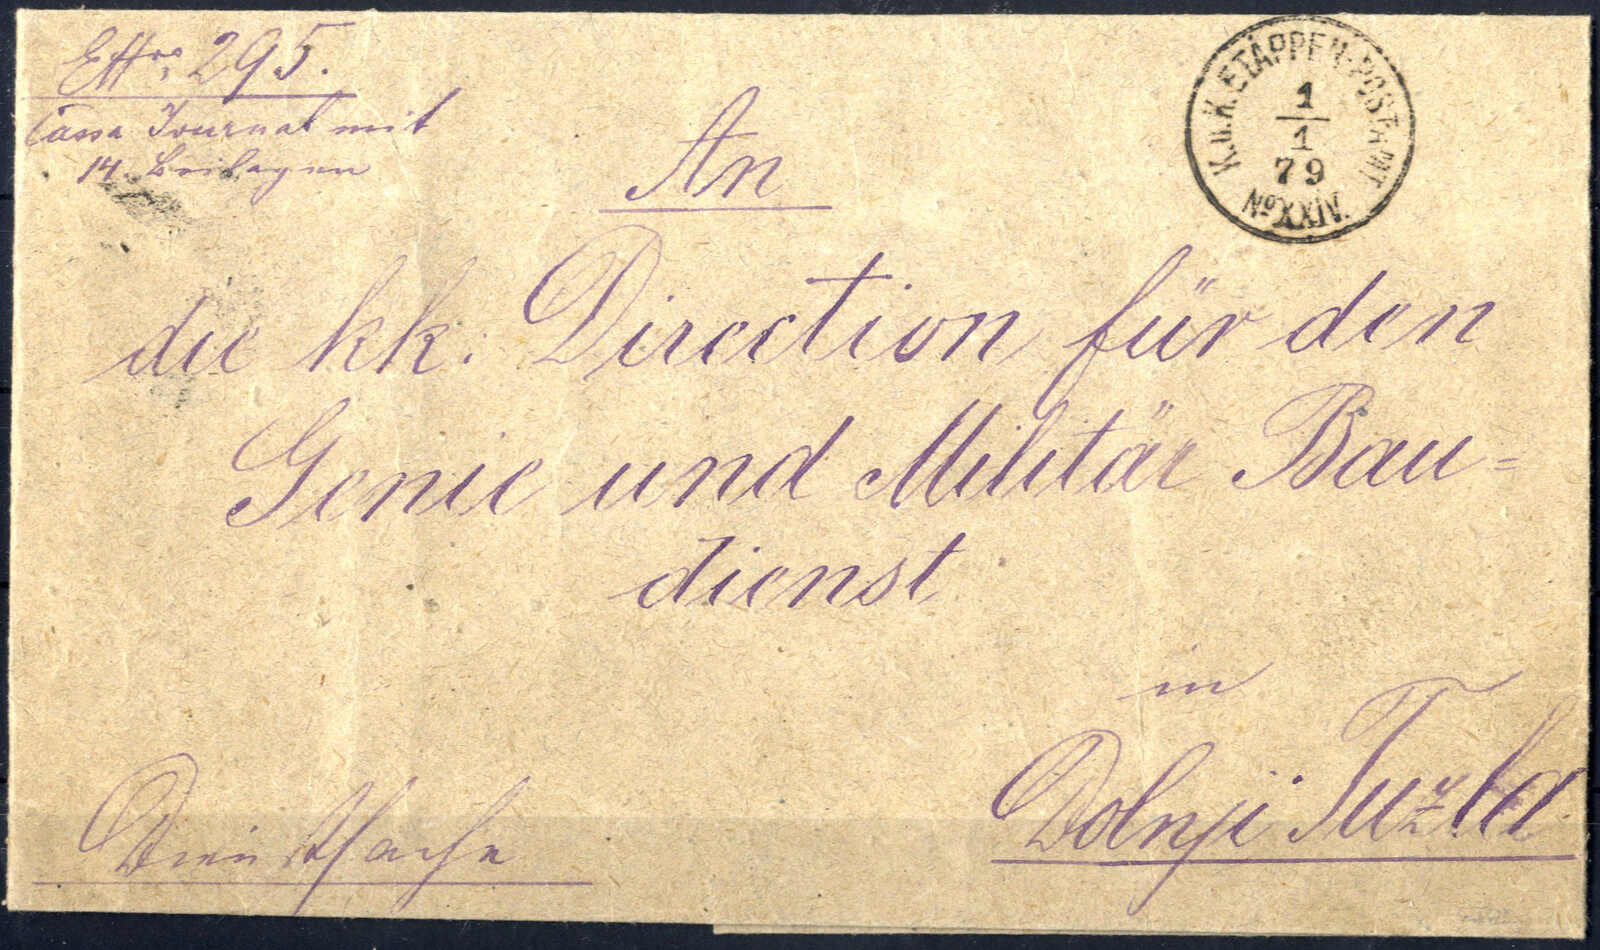 295.
Cassa Journal mit
14. Beilagen
K.u.K. ETAPPEN-POSTAMT
1
1
79
No XXIV.
An
die kk. Direction für den
Genie und Militär Bau=
dienst
in
Dolnji Tuzla
Dienstsache